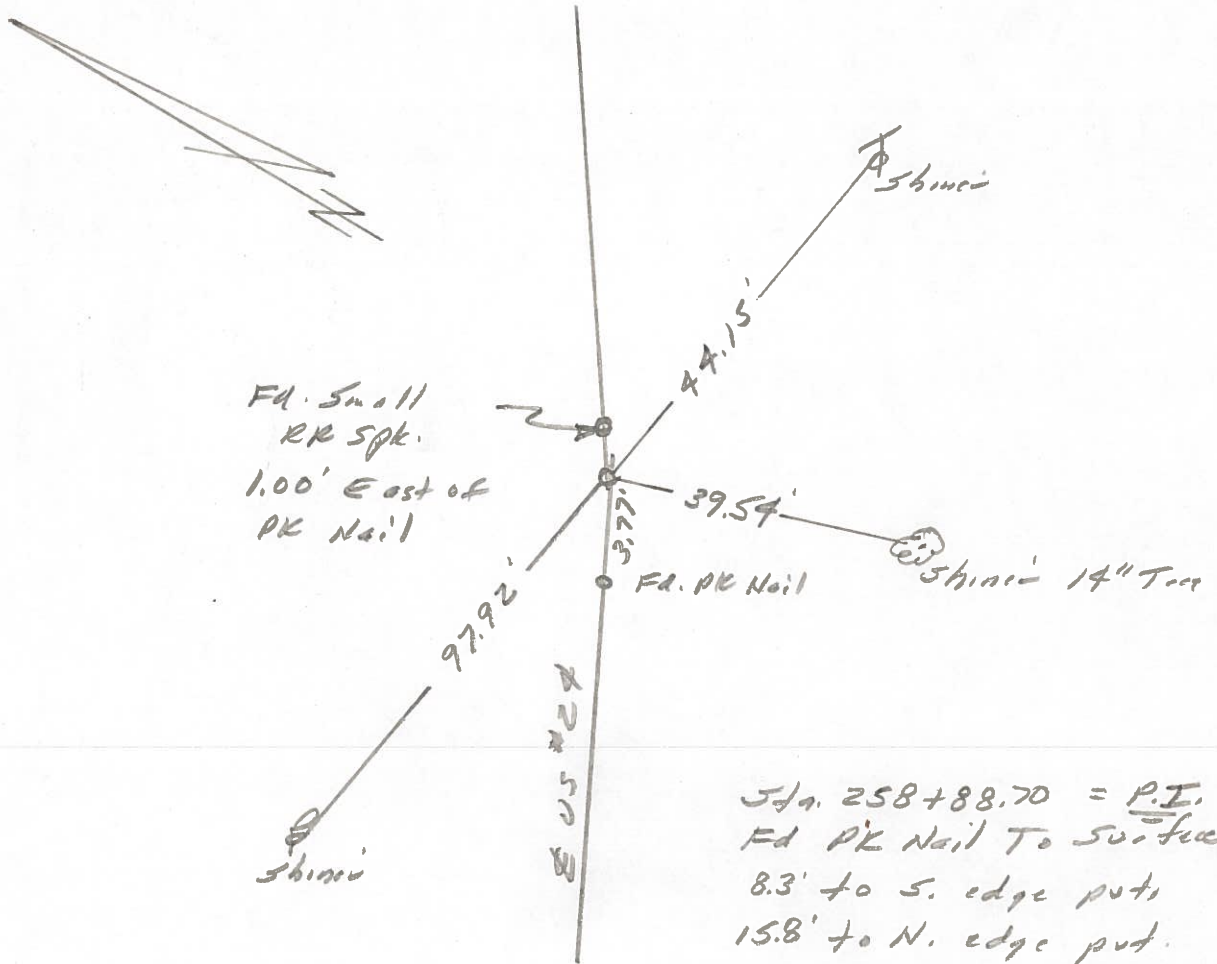 Shiner
44.15'
Fd. Small
RR Spk.
1.00' East of
PK Nail
39.54'
3.77'
Shiner 14" Tree
Fd. PK Nail
97.92'
℄ US #24
Shiner
Sta. 258+88.70 = P.I.
Fd PK Nail To Surface
8.3' to S. edge pvt.
15.8' to N. edge pvt.